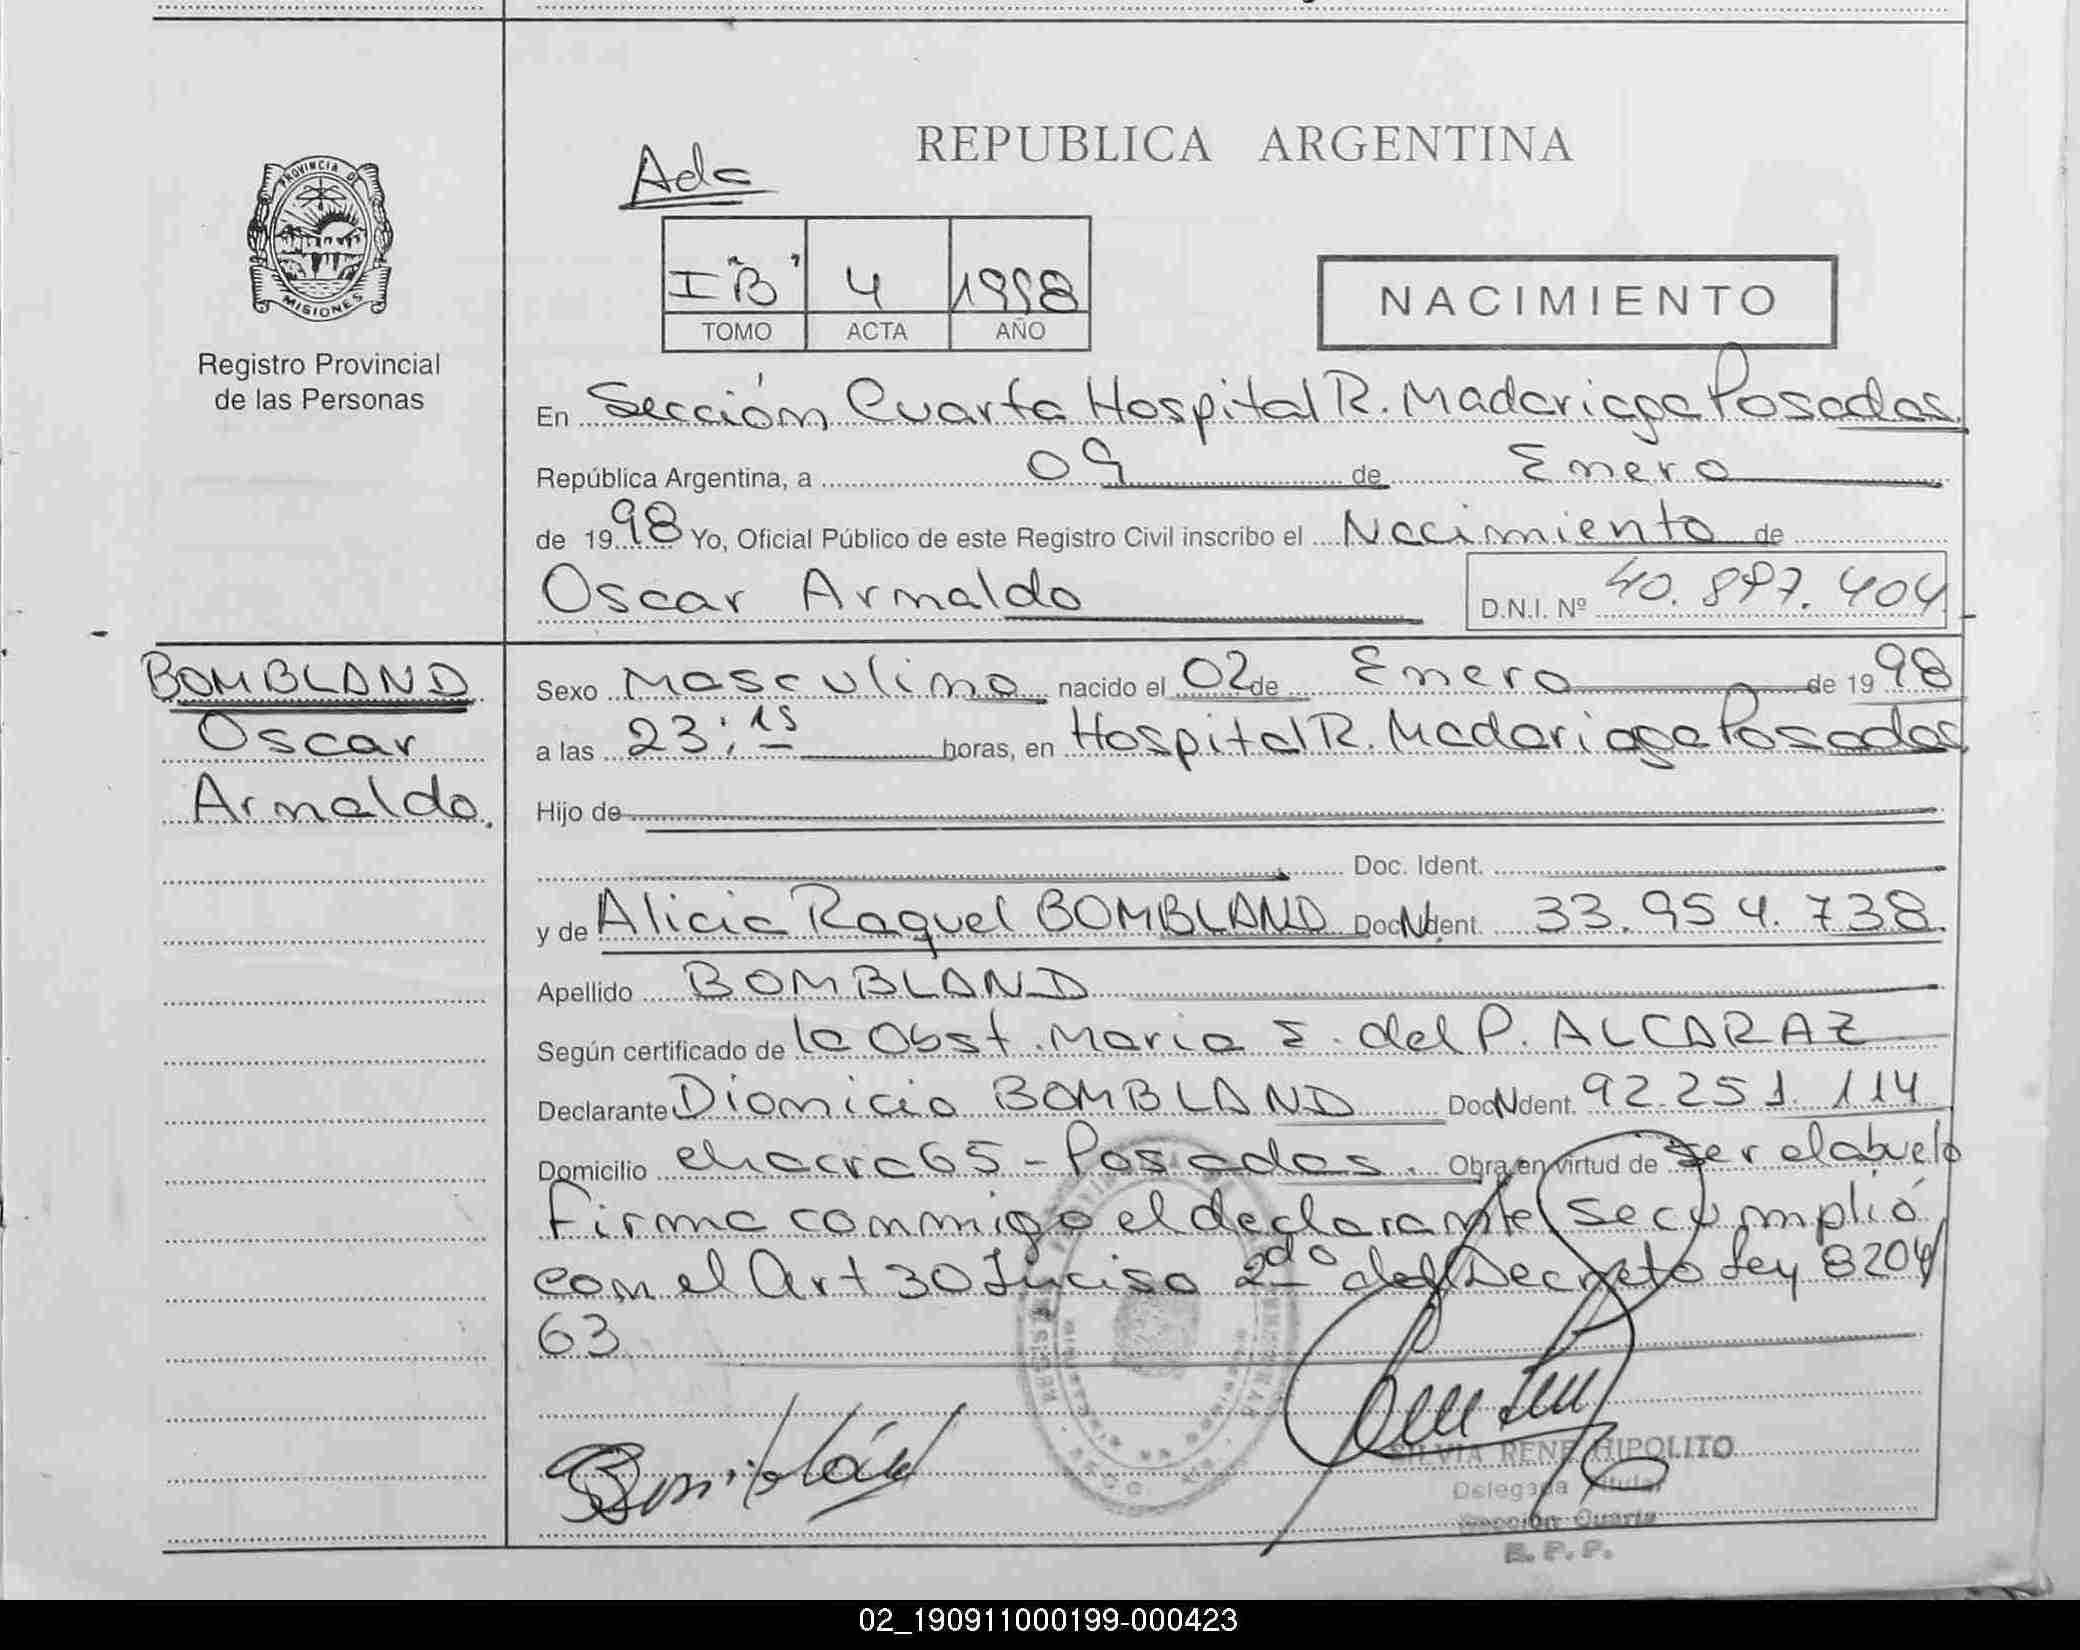 REPUBLICA ARGENTINA
Ada
PROVINCIA DE
MISIONES
Registro Provincial
de las Personas
I "B" 4 1998
TOMO ACTA AÑO
NACIMIENTO
En Sección Cuarta Hospital R. Madariaga Posadas.
República Argentina, a 09 de Enero
de 1998 Yo, Oficial Público de este Registro Civil inscribo el Nacimiento de
Oscar Arnaldo D.N.I. Nº 40.897.404
BOMBLAND
Oscar
Arnaldo.
Sexo Masculino nacido el 02 de Enero de 1998
a las 23:15 horas, en Hospital R. Madariaga Posadas
Hijo de
Doc. Ident.
y de Alicia Raquel BOMBLAND Doc. Ident. 33.954.738.
Apellido BOMBLAND
Según certificado de la Obst. Maria E. del P. ALCARAZ
Declarante Dionicio BOMBLAND Doc. Ident. 92.251.114
Domicilio chacra 65 - Posadas. Obra en virtud de ser el abuelo
Firma conmigo el declarante se cumplió
con el Art 30 Inciso 2do del Decreto Ley 8204/
63
SILVIA RENE HIPOLITO
Delegada Titular
Sección Cuarta
R. P. P.
02_190911000199-000423